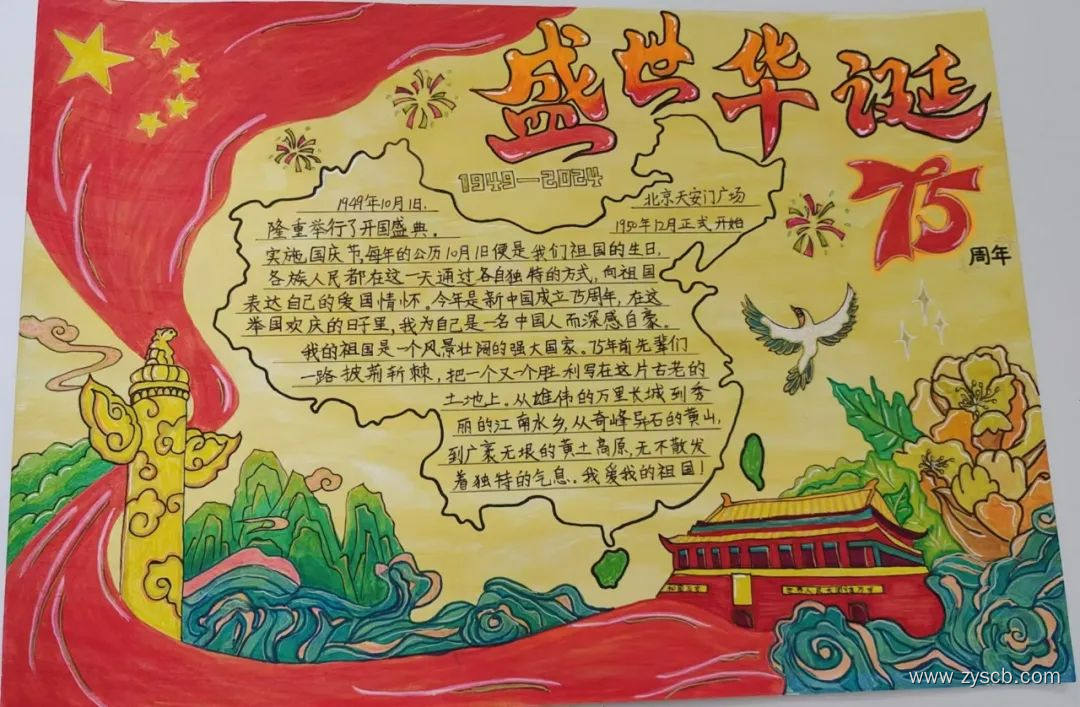 盛世华诞
75
周年
1949—2024
1949年10月1日, 北京天安门广场
隆重举行了开国盛典。 1950年12月正式开始
实施,国庆节,每年的公历10月1日便是我们祖国的生日,
各族人民都在这一天通过各自独特的方式,向祖国
表达自己的爱国情怀。今年是新中国成立75周年,在这
举国欢庆的日子里,我为自己是一名中国人而深感自豪。
我的祖国是一个风景壮阔的强大国家。75年前先辈们
一路披荆斩棘,把一个又一个胜利写在这片古老的
土地上。从雄伟的万里长城到秀
丽的江南水乡,从奇峰异石的黄山,
到广袤无垠的黄土高原,无不散发
着独特的气息。我爱我的祖国!
www.zyscb.com